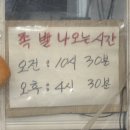 족발 나오는시간
오전 : 10시 30분
오후 : 4시 30분